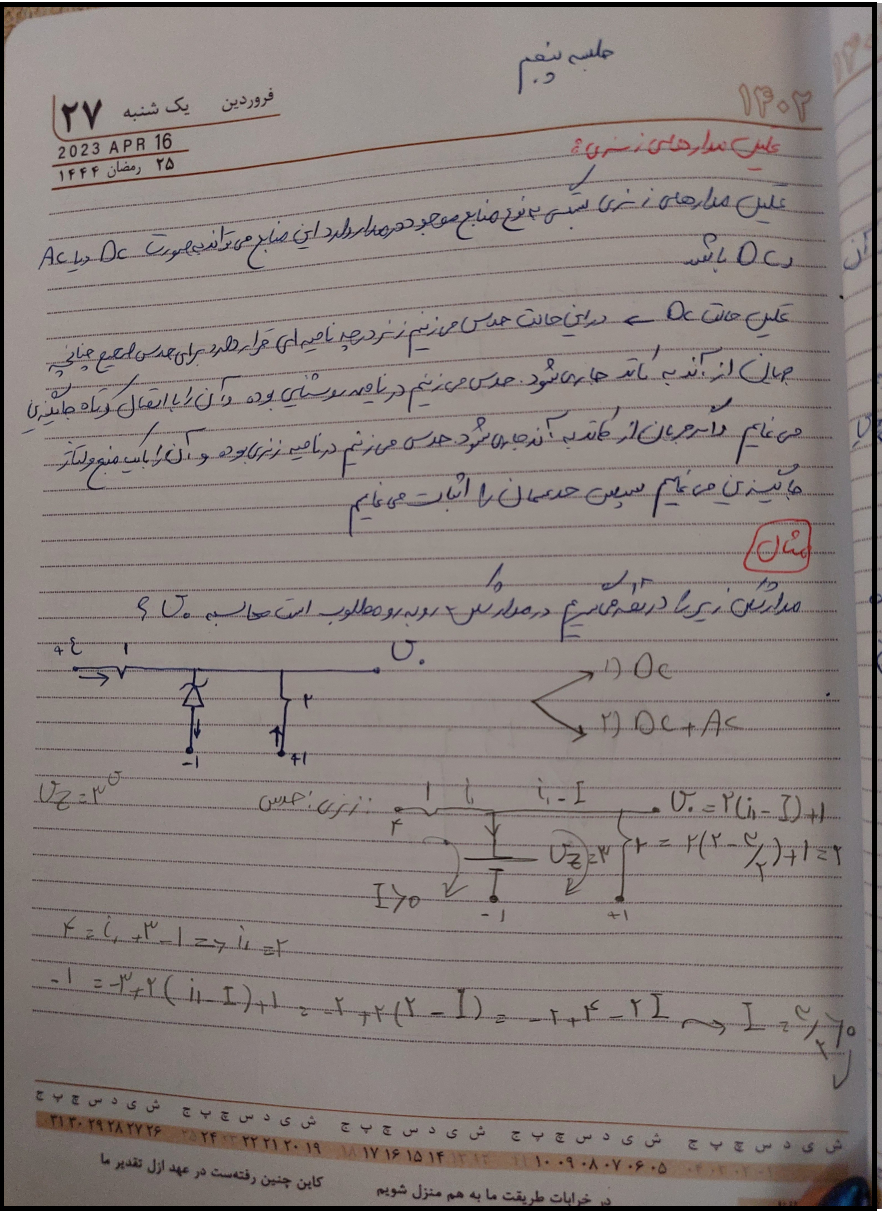 جلسه پنجم
۱۴۰۲
۲۷ یک شنبه فروردین
2023 APR 16
۲۵ رمضان ۱۴۴۴
تحلیل مدارهای زنری:
تحلیل مدارهای زنری بستگی به نوع منابع موجود در مدار دارد این منابع می تواند به صورت Dc و یا Ac
و Dc باشد
تحلیل حالت Dc ← در این حالت حدس می زنیم زنر در چه ناحیه ای قرار دارد برای حدس صحیح چنانچه
جریان از آند به کاتد جاری شود. حدس می زنیم در ناحیه روشنایی بوده و آن را با اتصال کوتاه جایگزین
می نمایم و اگر جریان از کاتد به آند جاری شود حدس می زنیم در ناحیه زنری بوده و آن را با یک منبع ولتاژ
جایگزین می نمایم سپس حدسمان را اثبات می نمایم
مثال
مدار شکل زیر را در نظر می گیریم در مدار شکل رو به رو مطلوب است محاسبه v۰ ؟
+۴ ۱ v۰
۱) Dc
۲
۲) DC + AC
-۱ +۱
v_Z = ۳^v
حدس: زنری
۱ i₁ i₁-I v۰ = ۲(i₁-I)+۱
۴ v_Z=۳ ۲ = ۲(۲-۳/۲)+۱=۲
I>۰ I
-۱ +۱
۴ = i₁ + ۳ - ۱ => i₁ = ۲
-۱ = -۳+۲(i₁-I)+۱ = -۲+۲(۲-I) = -۲+۴-۲I ⇝ I = ۳/۲ >۰ ✓
ش ی د س چ پ ج ش ی د س چ پ ج ش ی د س چ پ ج ش ی د س چ پ ج ش ی د س چ پ ج
۰۵ ۰۶ ۰۷ ۰۸ ۰۹ ۱۰ ۱۴ ۱۵ ۱۶ ۱۷ ۱۹ ۲۰ ۲۱ ۲۲ ۲۴ ۲۶ ۲۷ ۲۸ ۲۹ ۳۰ ۳۱
در خرابات طریقت ما به هم منزل شویم
کاین چنین رفته‌ست در عهد ازل تقدیر ما